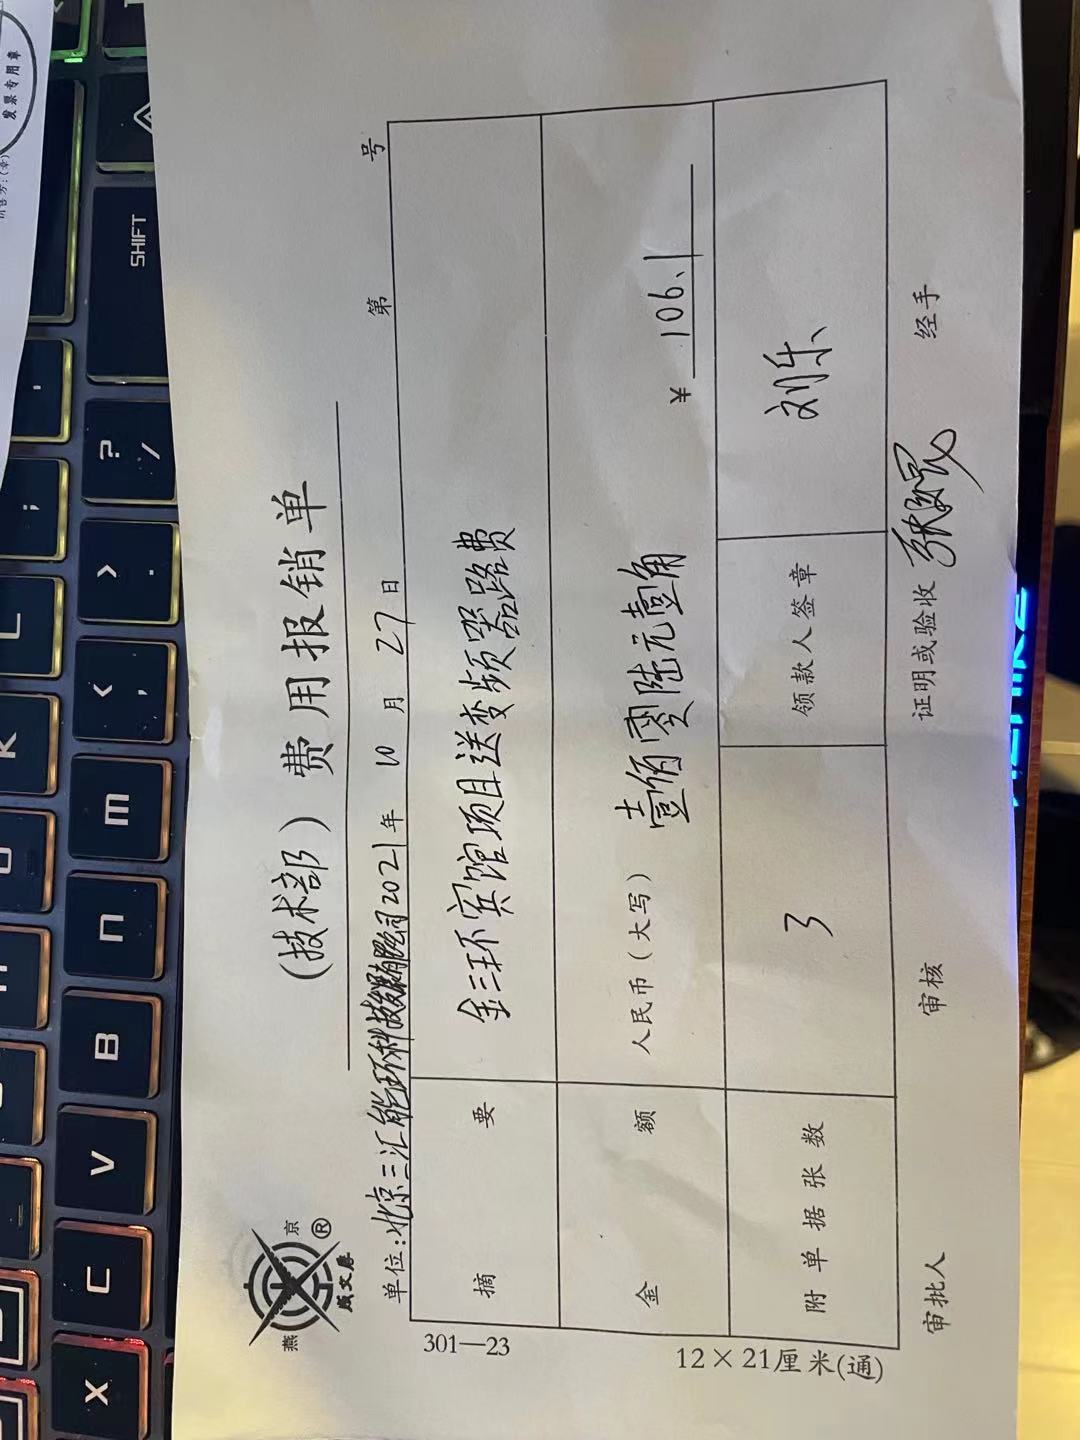 燕京
®
威文房
(技术部)费用报销单
单位:北京三汇能环科技有限公司2021年10月27日 第 号
摘要 金三环宾馆项目送变频器路费
金额 人民币(大写) 壹佰零陆元壹角 ¥106.1
附单据张数 3 领款人签章 刘乐
审批人 审核 证明或验收 经手
301—23
12×21厘米(通)
发票专用章
SHIFT
?
/
>
.
<
,
M
N
B
V
C
X
;
L
K